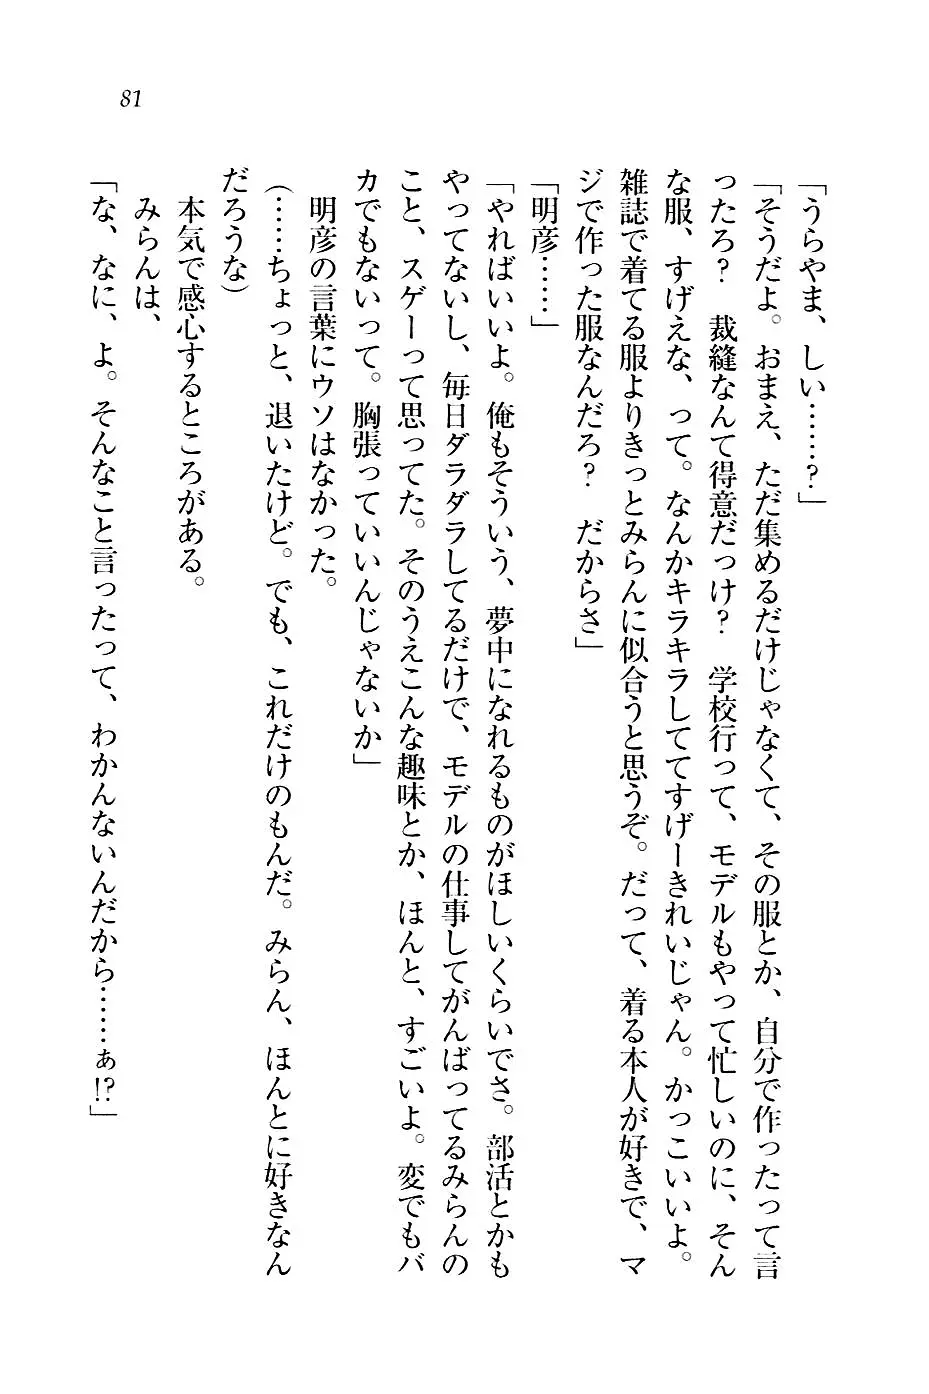 81
「うらやま、しい……？」
「そうだよ。おまえ、ただ集めるだけじゃなくて、その服とか、自分で作ったって言
ったろ？　裁縫なんて得意だっけ？　学校行って、モデルもやって忙しいのに、そん
な服、すげえな、って。なんかキラキラしててすげーきれいじゃん。かっこいいよ。
雑誌で着てる服よりきっとみらんに似合うと思うぞ。だって、着る本人が好きで、マ
ジで作った服なんだろ？　だからさ」
「明彦……」
「やればいいよ。俺もそういう、夢中になれるものがほしいくらいでさ。部活とかも
やってないし、毎日ダラダラしてるだけで、モデルの仕事してがんばってるみらんの
こと、スゲーって思ってた。そのうえこんな趣味とか、ほんと、すごいよ。変でもバ
カでもないって。胸張っていいんじゃないか」
明彦の言葉にウソはなかった。
（……ちょっと、退いたけど。でも、これだけのもんだ。みらん、ほんとに好きなん
だろうな）
本気で感心するところがある。
みらんは、
「な、なに、よ。そんなこと言ったって、わかんないんだから……ぁ!?」